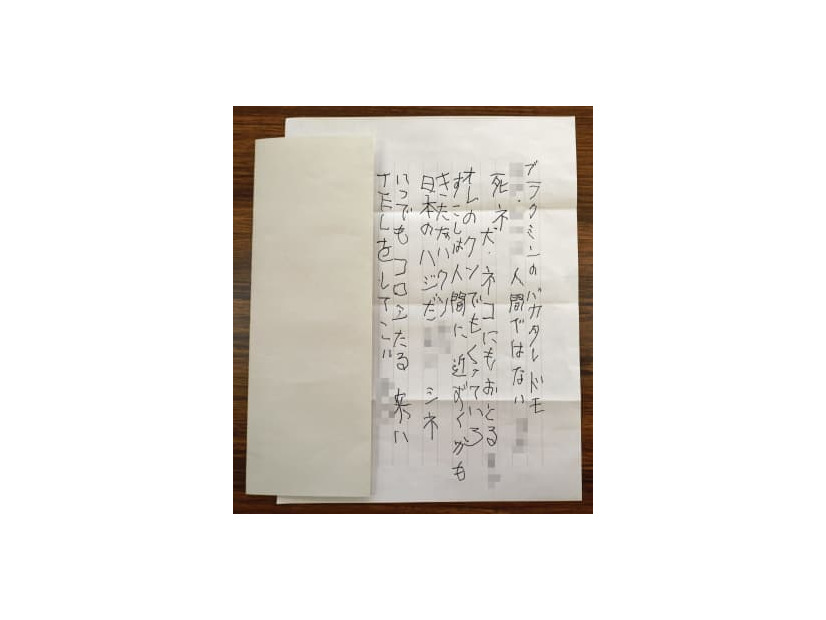 ブラクミンのバカタレドモ
人間ではない
死ネ 犬・ネコにもおとる
オレのクソでもくっていろ
すこしは人間に近ずくかも
きたないクソ
日本のハジだ シネ
いつでもコロシたる 来い
をして